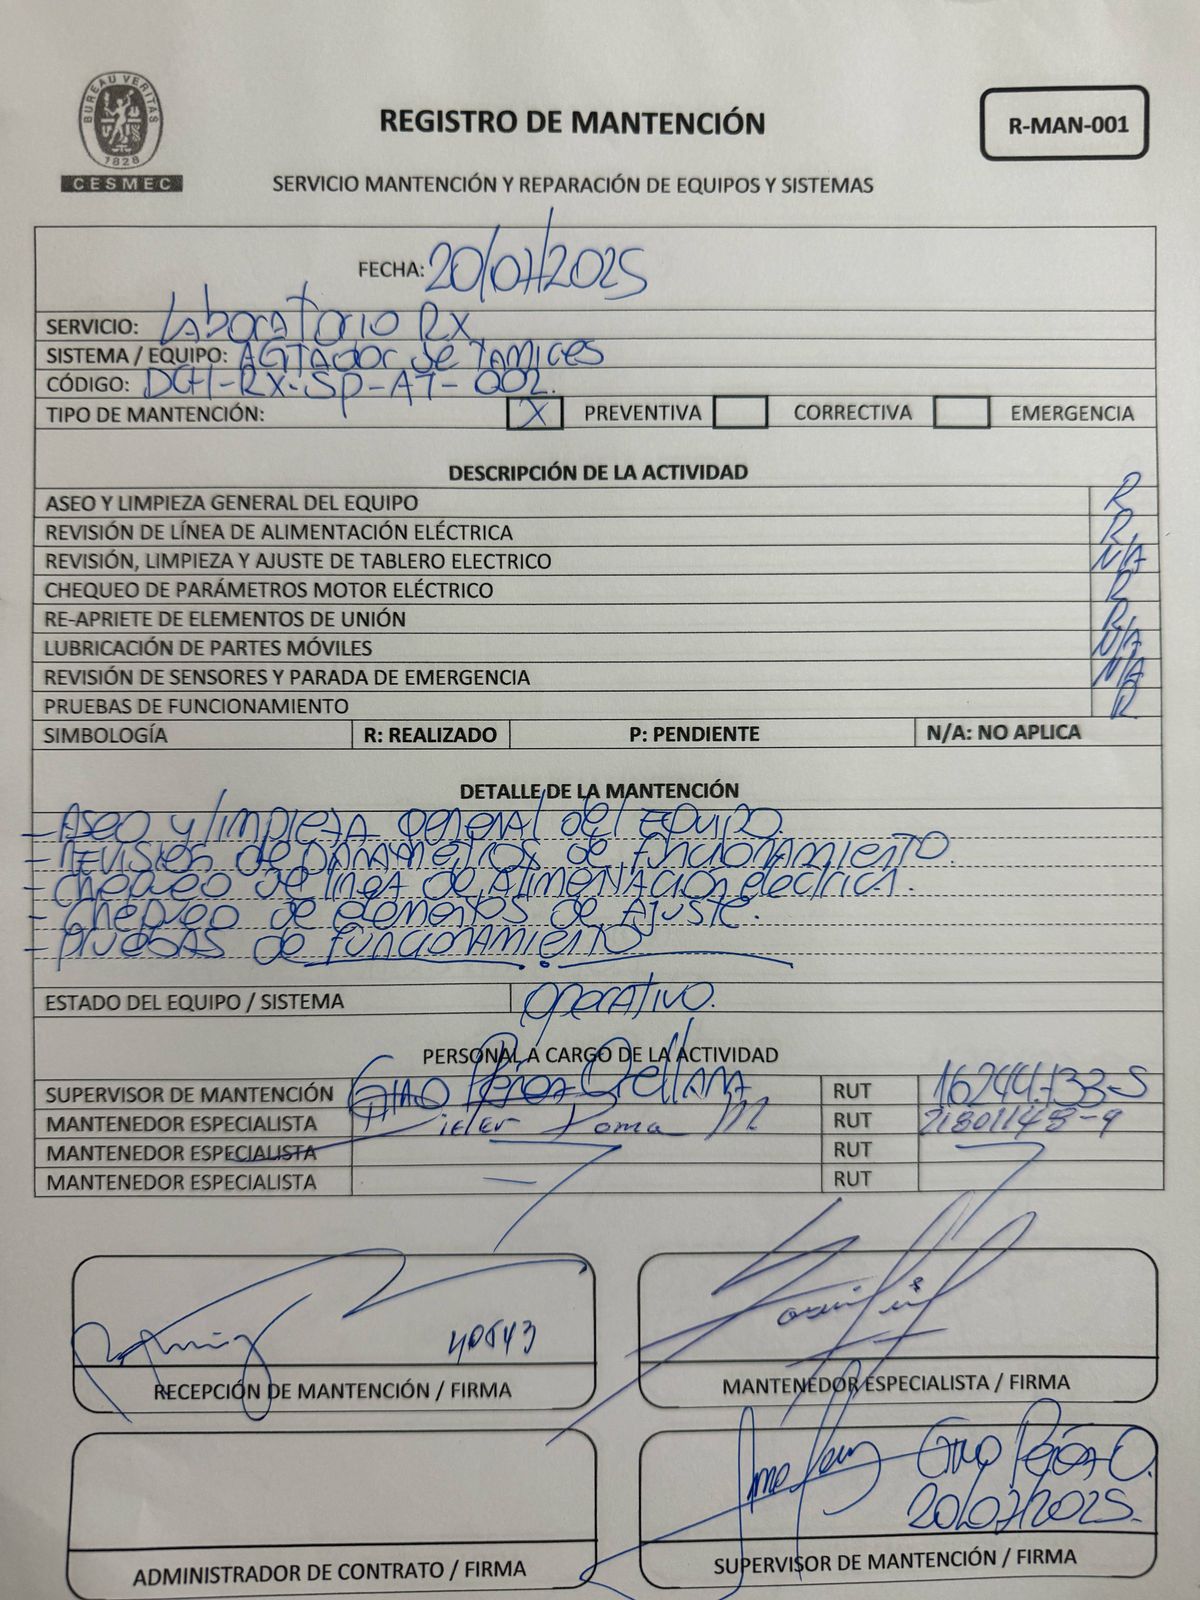 BUREAU VERITAS
1828
CESMEC
REGISTRO DE MANTENCIÓN
R-MAN-001
SERVICIO MANTENCIÓN Y REPARACIÓN DE EQUIPOS Y SISTEMAS
FECHA: 20/07/2025
SERVICIO: Laboratorio RX
SISTEMA / EQUIPO: AGITADOR de TAMICES
CÓDIGO: DCH-RX-SP-AT-002.
TIPO DE MANTENCIÓN: X PREVENTIVA CORRECTIVA EMERGENCIA
DESCRIPCIÓN DE LA ACTIVIDAD
ASEO Y LIMPIEZA GENERAL DEL EQUIPO R
REVISIÓN DE LÍNEA DE ALIMENTACIÓN ELÉCTRICA R
REVISIÓN, LIMPIEZA Y AJUSTE DE TABLERO ELECTRICO N/A
CHEQUEO DE PARÁMETROS MOTOR ELÉCTRICO R
RE-APRIETE DE ELEMENTOS DE UNIÓN R
LUBRICACIÓN DE PARTES MÓVILES N/A
REVISIÓN DE SENSORES Y PARADA DE EMERGENCIA N/A
PRUEBAS DE FUNCIONAMIENTO R
SIMBOLOGÍA R: REALIZADO P: PENDIENTE N/A: NO APLICA
DETALLE DE LA MANTENCIÓN
- Aseo y limpieza general del Equipo.
- de parametros de funcionamiento.
- Chequeo de línea de alimentación electrica.
- Chequeo de elementos de Ajuste.
- Pruebas de funcionamiento.
ESTADO DEL EQUIPO / SISTEMA operativo.
PERSONAL A CARGO DE LA ACTIVIDAD
SUPERVISOR DE MANTENCIÓN Orellana RUT 16244733-5
MANTENEDOR ESPECIALISTA Poma M RUT 21801148-9
MANTENEDOR ESPECIALISTA RUT
MANTENEDOR ESPECIALISTA RUT
RECEPCIÓN DE MANTENCIÓN / FIRMA
MANTENEDOR ESPECIALISTA / FIRMA
20/07/2025.
ADMINISTRADOR DE CONTRATO / FIRMA
SUPERVISOR DE MANTENCIÓN / FIRMA